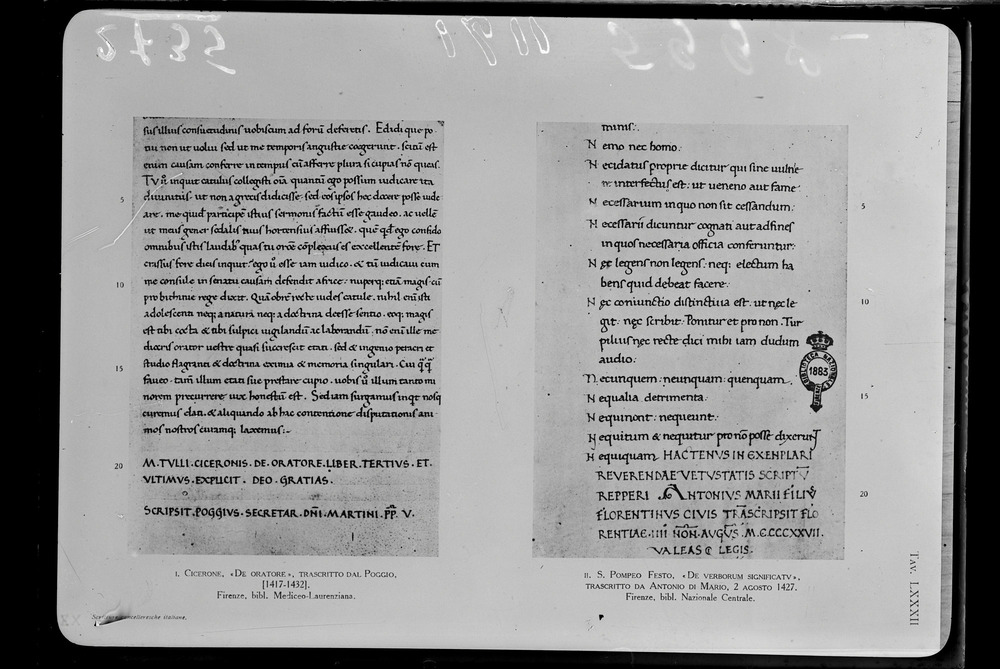 sus illius consuetudinis uobiscum ad forū deferetis. Edidi que po
tui non ut uolui sed ut me temporis angustie coegerunt. scitū est
enim causam conferre in tempus cū afferre plura si cupias nō queas.
TV ū inquit catulus collegisti oīa quantū ego possum iudicare ita
5
diuinitus. ut non a grecis didicisse. sed eos ipsos hec docere posse uide
are. me quid participē istius sermonis factū esse gaudeo. ac uellē
ut meus gener sodalis tuus hortensius affuisset. quē qd ego confido
omnibus istis laudib quas tu orōe cōplexus es excellentē fore. ET
crassus fore dicis inquit. ego ū esse iam iudico. & tū iudicaui cum
10
me consule in senatu causam defendit africe. nuperq; etiā magis cū
pro bithinie rege dixit. Quā obrē recte uides catule. nihil enī isti
adolescenti neq; a natura neq; a doctrina deesse sentio. eoq; magis
est tibi cocta & tibi sulpici uigilandū ac laborandū. nō enī ille me
diocris orator uestre quasi succrescit etati. sed & ingenio peracri et
15
studio flagranti & doctrina eximia & memoria singulari. Cui q̄q̄
faueo. tamē illum etati sue prestare cupio. uobis ū illum tanto mi
norem precurrere uix honestū est. Sed iam surgamus inqt nosq
curemus elati. & aliquando ab hac contentione disputationis ani
mos nostros curamq; laxemus:~
20
M. TVLLI. CICERONIS. DE. ORATORE. LIBER. TERTIVS. ET.
VLTIMVS. EXPLICIT. DEO. GRATIAS.
SCRIPSIT. POGGIVS. SECRETAR. DN̄I. MARTINI. P̄P̄. V.
I. Cicerone, «De oratore», trascritto dal Poggio,
[1417-1432].
Firenze, bibl. Mediceo-Laurenziana.
minis.
N emo nec homo.
N ecidatus proprie dicitur qui sine uulne
re interfectus est. ut ueneno aut fame.
N ecessarium in quo non sit cessandum. 5
N ecessarii dicuntur cognati aut adfines
in quos necessaria officia conferuntur.
N ec legens non legens. neq; electum ha
bens quid debeat facere.
N ec coniunctio distinctiua est. ut nec le 10
git. nec scribit. Ponitur et pro non. Tur
pilius nec recte dici mihi iam dudum
audio.
N ecunquem. neunquam. quenquam.
N equalia detrimenta. 15
N equinont. nequeunt.
N equitum & nequitur pro nō posse dixerunt
N equiquam. HACTENVS IN EXENPLARI
REVERENDAE VETVSTATIS SCRIPTV̄
REPPERI ANTONIVS MARII FILIVS 20
FLORENTINVS CIVIS TRĀSCRIPSIT FLO
RENTIAE. IIII NŌN. AVGVS. M.CCCCXXVII.
VALEAS Q LEGIS.
BIBLIOTECA NAZIONALE
1885
FIRENZE
II. S. Pompeo Festo, «De verborum significatv»,
trascritto da Antonio di Mario, 2 agosto 1427.
Firenze, bibl. Nazionale Centrale.
Tav. LXXXII
cancelleresche italiane.